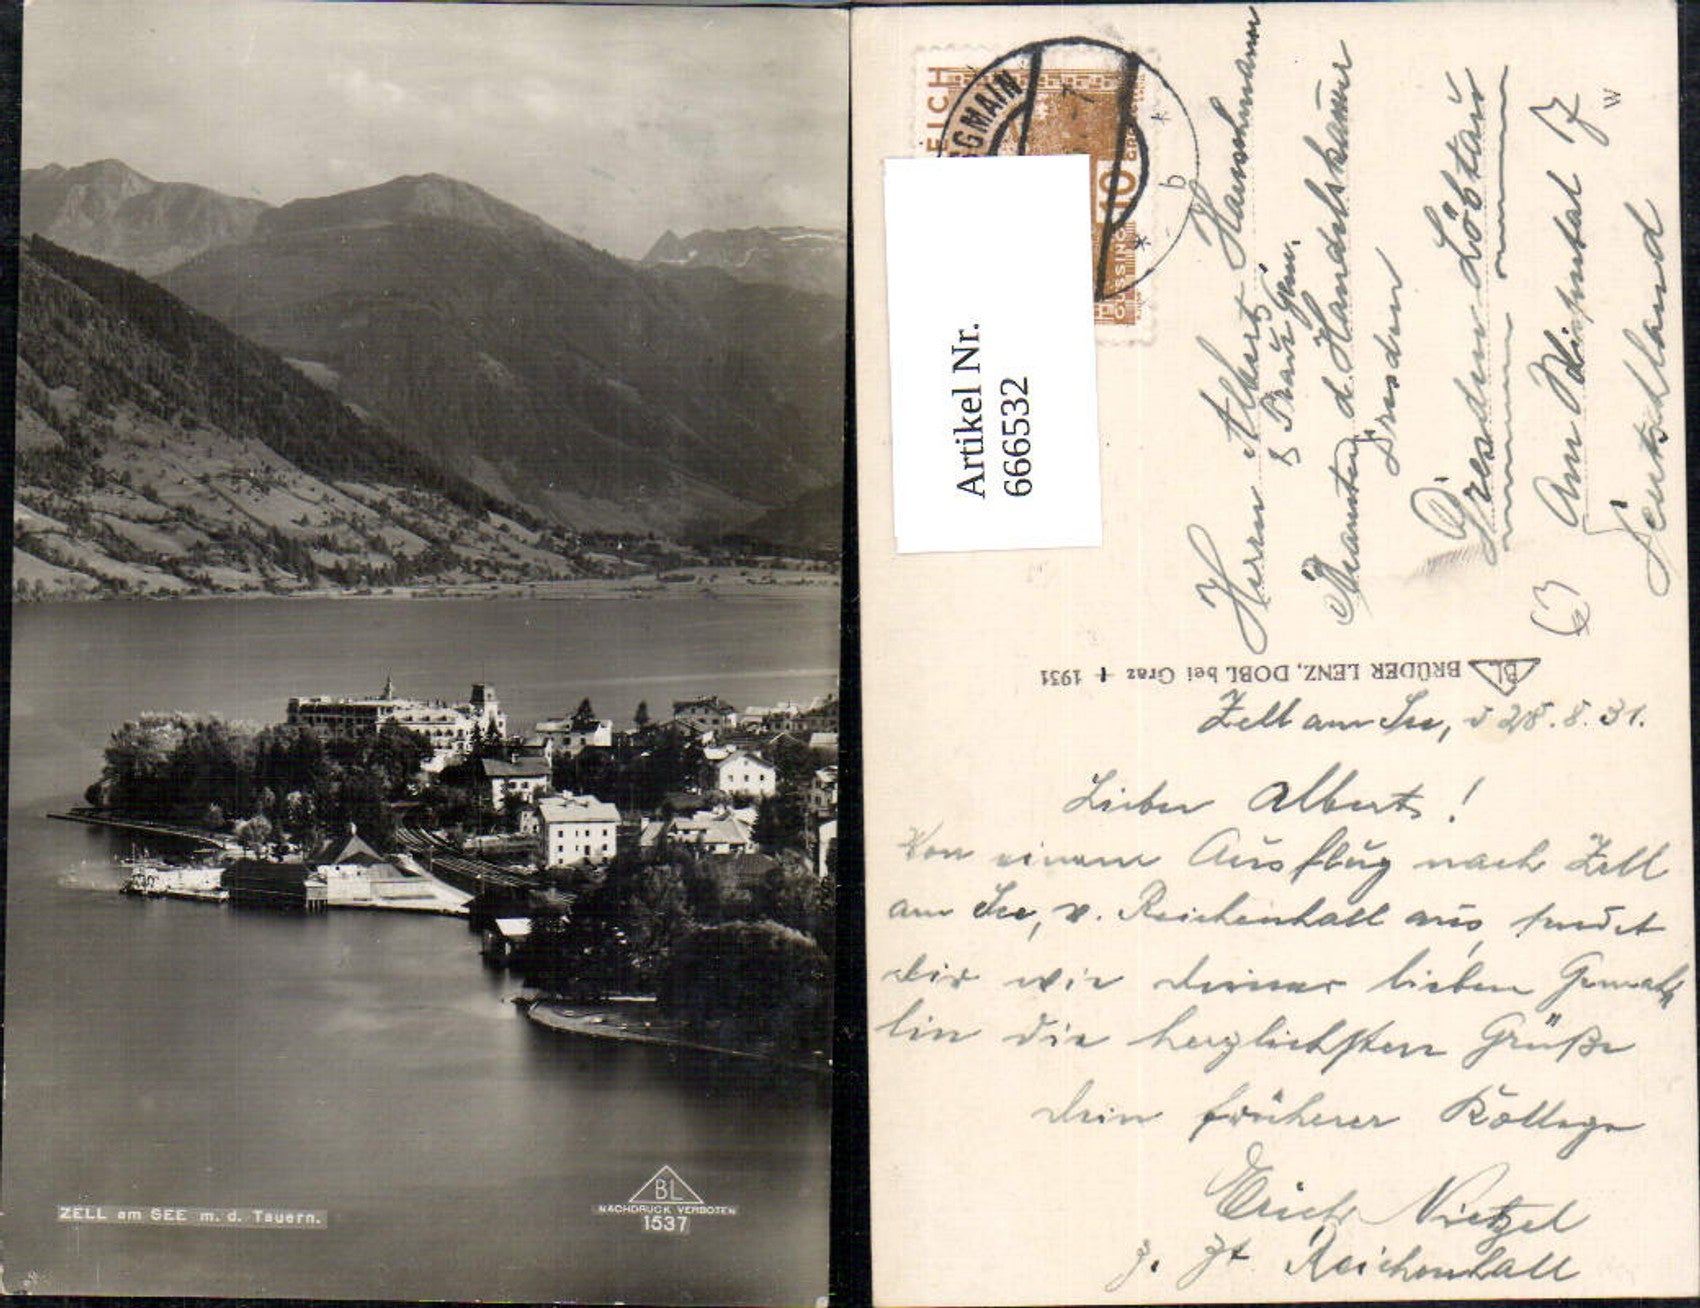 ZELL am SEE m. d. Tauern.
BL
NACHDRUCK VERBOTEN
1537
EICH
GGMAIN
b
10
Artikel Nr.
666532
Herrn Albert Hanschmann
& Frau Gem.
Beamter d. Handelskammer
Dresden
Dresden Löbtau
Am 17
Deutschland
W
BL BRÜDER LENZ, DOBL bei Graz + 1931
Zell am See, 28.8.31.
Lieber Albert!
Von einem Ausflug nach Zell
am See, v. Reichenhall aus, sendet
dir wie deiner lieben Gemah
lin die herzlichsten Grüße
dein früherer Kollege
Erich Nietzel
z. Zt. Reichenhall